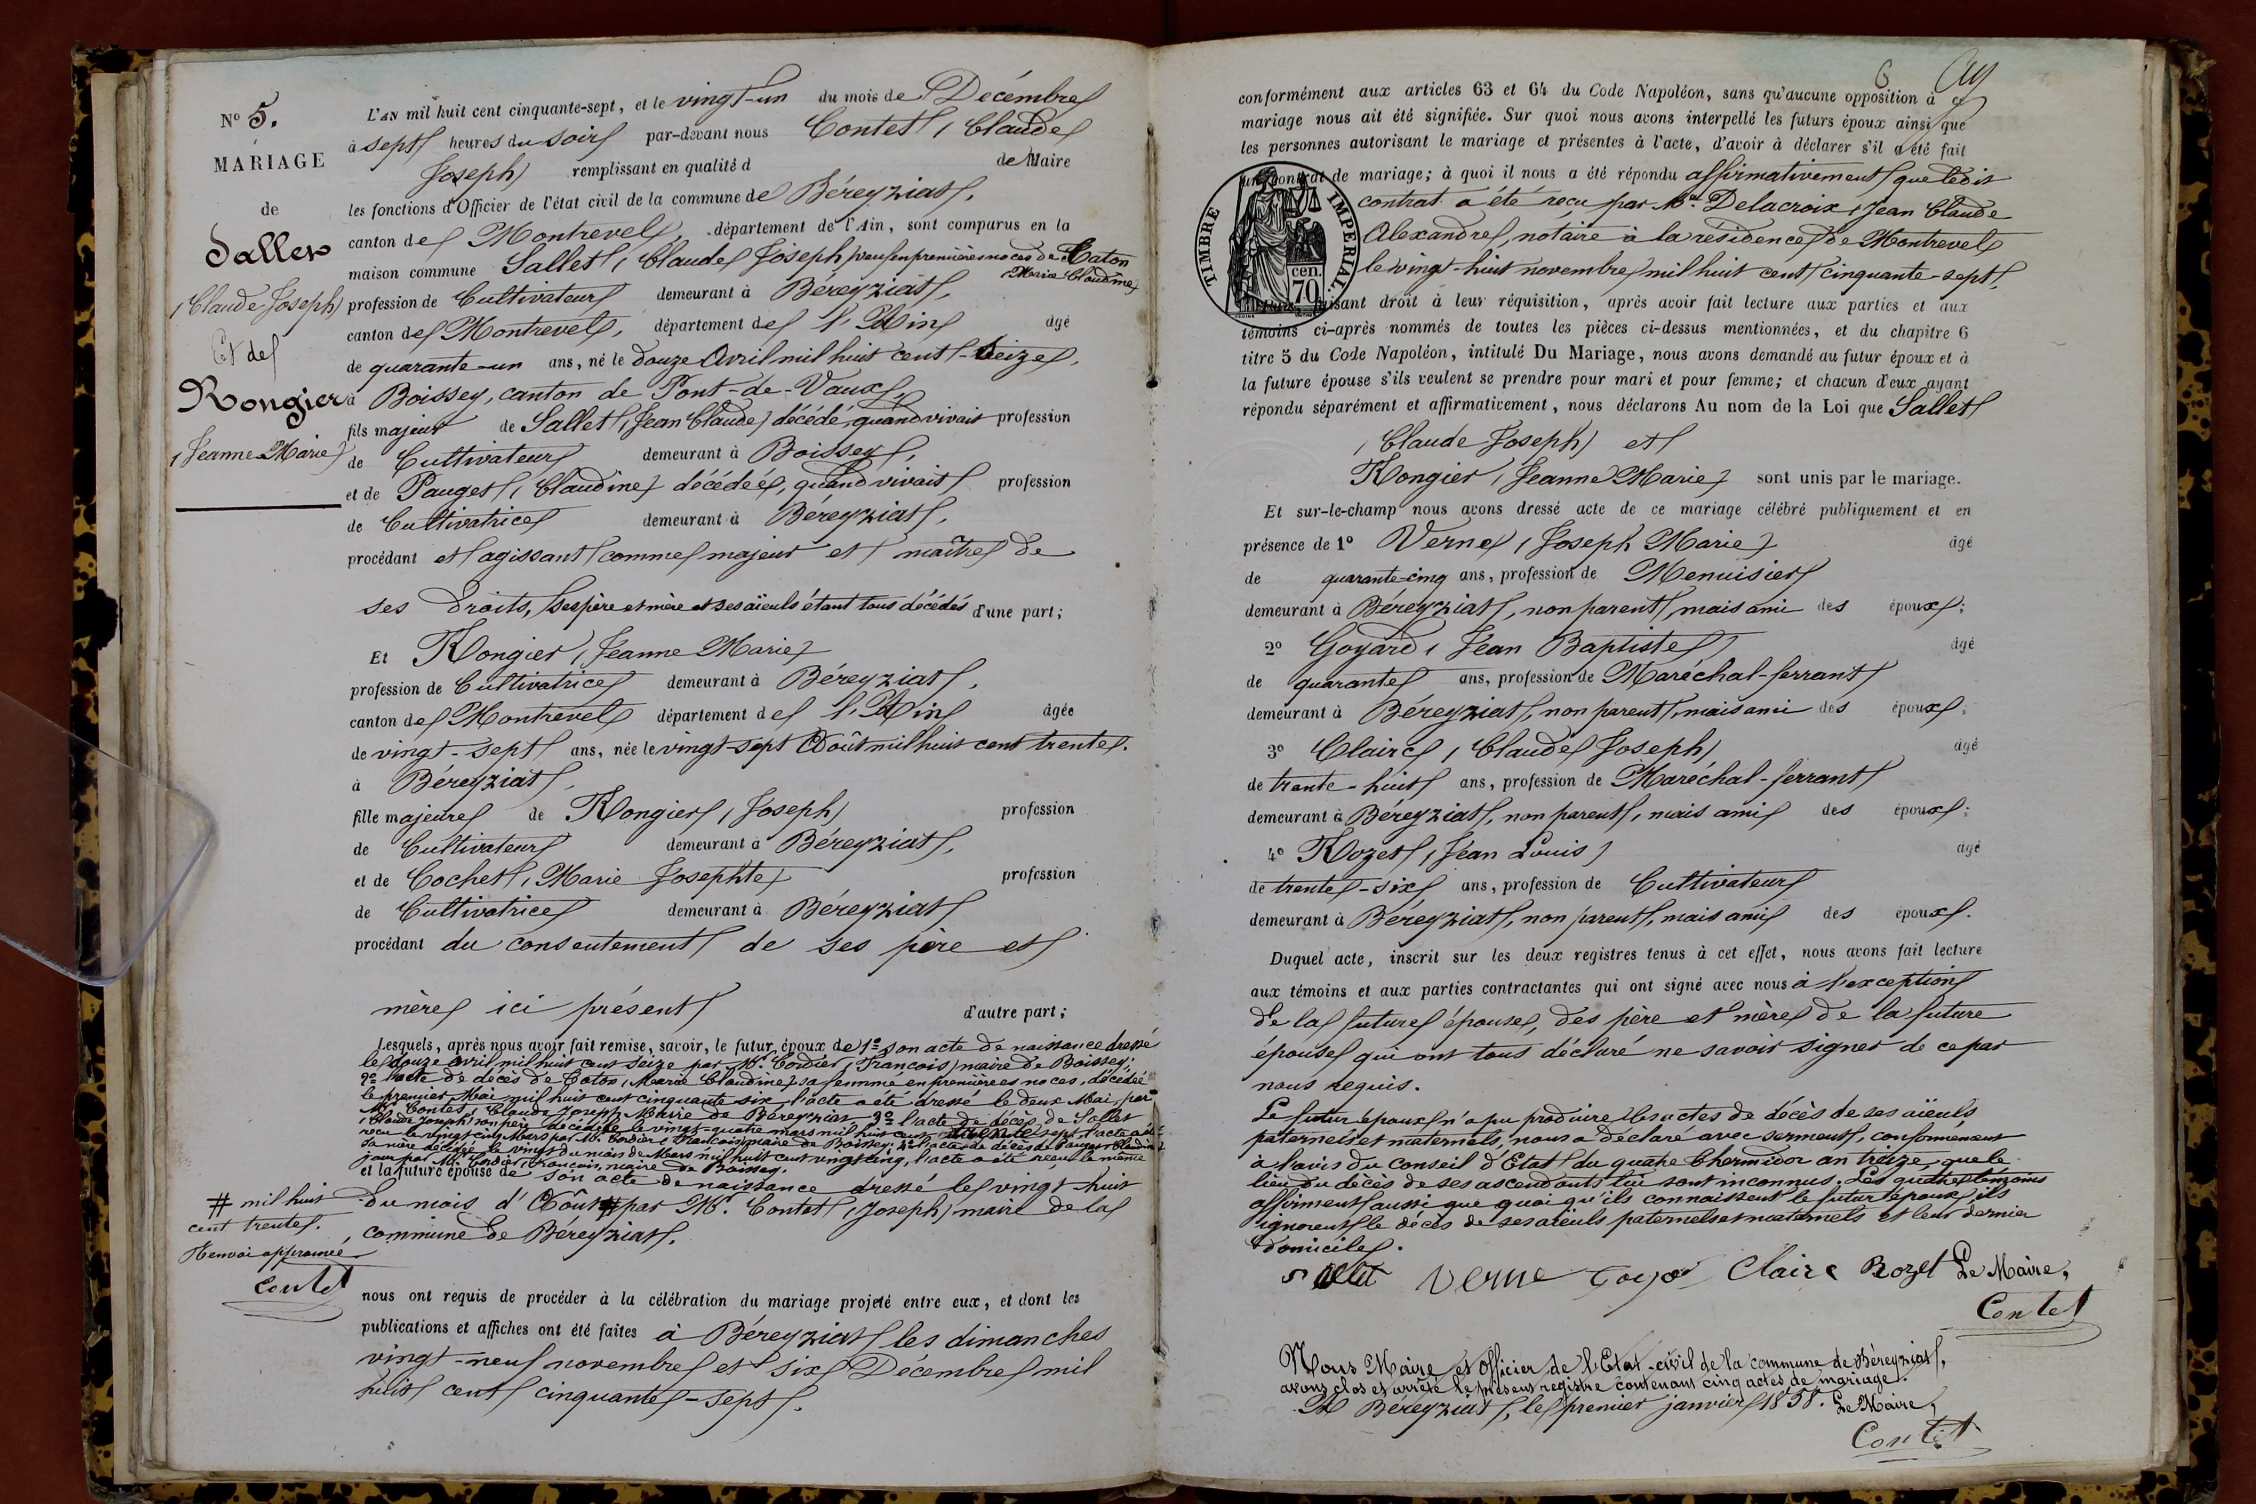 N° 5.
MARIAGE
de
Sallet
(Claude Joseph)
Et de
Rongier
(Jeanne Marie)
L'AN mil huit cent cinquante-sept, et le vingt-un du mois de Décembre
à sept heures du soir par-devant nous Contet (Claude
Joseph) remplissant en qualité d de Maire
les fonctions d'Officier de l'état civil de la commune de Béreyziat,
canton de Montrevel, département de l'Ain, sont comparus en la
maison commune Sallet (Claude Joseph) veuf en premières noces de Caton
(Marie Claudine)
profession de Cultivateur demeurant à Béreyziat,
canton de Montrevel, département de l'Ain âgé
de quarante-un ans, né le douze Avril mil huit cent seize,
à Boissey, canton de Pont-de-Vaux,
fils majeur de Sallet (Jean Claude) décédé, quand vivait profession
de Cultivateur demeurant à Boissey,
et de Pauget (Claudine) décédée, quand vivait profession
de Cultivatrice demeurant à Béreyziat,
procédant et agissant comme majeur et maître de
ses droits, ses père et mère et ses aïeuls étant tous décédés d'une part;
Et Rongier (Jeanne Marie)
profession de Cultivatrice demeurant à Béreyziat,
canton de Montrevel département de l'Ain âgée
de vingt-sept ans, née le vingt-sept Août mil huit cent trente.
à Béreyziat,
fille majeure de Rongier (Joseph) profession
de Cultivateur demeurant à Béreyziat,
et de Cochet (Marie Josephte) profession
de Cultivatrice demeurant à Béreyziat
procédant du consentement de ses père et
mère ici présent d'autre part;
Lesquels, après nous avoir fait remise, savoir, le futur époux de 1° son acte de naissance dressé
le douze avril mil huit cent seize par Mr. Cordier (François) maire de Boissey;
2° l'acte de décès de Caton (Marie Claudine) sa femme en premières noces, décédée
le premier Mai mil huit cent cinquante six, l'acte a été dressé le deux Mai, par
Mr. Contet (Claude Joseph) Maire de Béreyziat 3° l'acte de décès de Sallet
(Claude Joseph) son père décédé le vingt-quatre mars mil huit cent sept, l'acte a été
reçu le vingt cinq Mars par Mr. Cordier (François) maire de Boissey; 4° l'acte de décès de Pauget (Claudine)
sa mère décédée le vingt du mois de Mars mil huit cent vingt cinq, l'acte a été reçu le même
jour par Mr. Cordier, François, maire de Boissey.
et la future épouse de son acte de naissance dressé le vingt-huit
du mois d'Août # par Mr. Contet (Joseph) maire de la
commune de Béreyziat.
# mil huit
cent trente.
Renvoi approuvé
Contet
nous ont requis de procéder à la célébration du mariage projeté entre eux, et dont les
publications et affiches ont été faites à Béreyziat les dimanches
vingt-neuf novembre et six Décembre mil
huit cent cinquante-sept.
6
conformément aux articles 63 et 64 du Code Napoléon, sans qu'aucune opposition à ce
mariage nous ait été signifiée. Sur quoi nous avons interpellé les futurs époux ainsi que
les personnes autorisant le mariage et présentes à l'acte, d'avoir à déclarer s'il a été fait
un contrat de mariage; à quoi il nous a été répondu affirmativement que ledit
contrat a été reçu par Me Delacroix (Jean Claude
Alexandre), notaire à la résidence de Montrevel
le vingt-huit novembre mil huit cent cinquante-sept.
TIMBRE IMPERIAL
70 cen.
faisant droit à leur réquisition, après avoir fait lecture aux parties et aux
témoins ci-après nommés de toutes les pièces ci-dessus mentionnées, et du chapitre 6
titre 5 du Code Napoléon, intitulé Du Mariage, nous avons demandé au futur époux et à
la future épouse s'ils veulent se prendre pour mari et pour femme; et chacun d'eux ayant
répondu séparément et affirmativement, nous déclarons Au nom de la Loi que Sallet
(Claude Joseph) et
Rongier (Jeanne Marie) sont unis par le mariage.
Et sur-le-champ nous avons dressé acte de ce mariage célébré publiquement et en
présence de 1° Verne (Joseph Marie) âgé
de quarante-cinq ans, profession de Menuisier
demeurant à Béreyziat, non parent, mais ami des époux;
2° Goyard (Jean Baptiste) âgé
de quarante ans, profession de Maréchal-ferrant
demeurant à Béreyziat, non parent, mais ami des époux;
3° Claire (Claude Joseph) âgé
de trente-huit ans, profession de Maréchal-ferrant
demeurant à Béreyziat, non parent, mais ami des époux;
4° Rozet (Jean Louis) âgé
de trente-six ans, profession de Cultivateur
demeurant à Béreyziat, non parent, mais ami des époux.
Duquel acte, inscrit sur les deux registres tenus à cet effet, nous avons fait lecture
aux témoins et aux parties contractantes qui ont signé avec nous à l'exception
de la future épouse, des père et mère de la future
épouse qui ont tous déclaré ne savoir signer de ce par
nous requis.
Le futur époux n'a pu produire les actes de décès de ses aïeuls
paternels et maternels, nous a déclaré avec serment, conformément
à l'avis du Conseil d'Etat du quatre Thermidor an treize, que le
lieu du décès de ses ascendants lui sont inconnus. Les quatre témoins
affirment aussi que quoi qu'ils connaissent le futur époux, ils
ignorent le décès de ses aïeuls paternels et maternels et leur dernier
domicile.
Sallet Verne Goyar Claire Rozet Le Maire,
Contet
Nous Maire et Officier de l'Etat-civil de la commune de Béreyziat,
avons clos et arrêté le présent registre contenant cinq actes de mariage.
A Béreyziat, le premier janvier 1858. Le Maire,
Contet